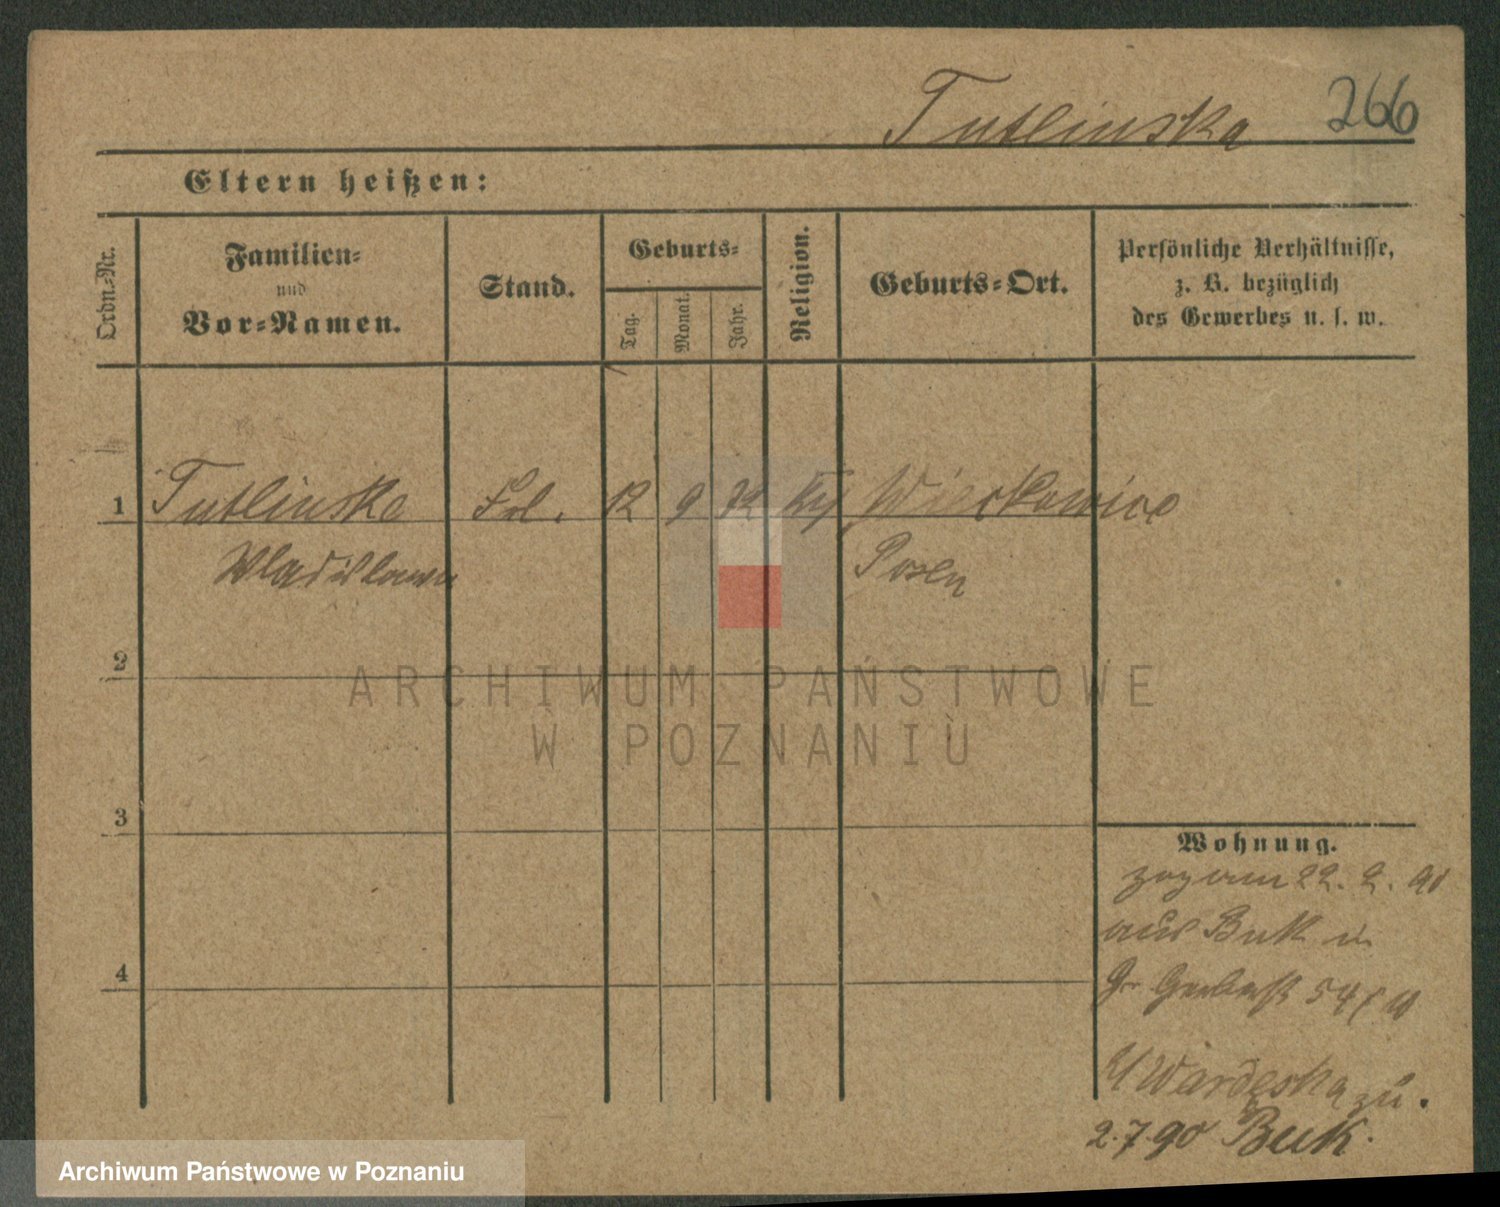 Tutlinska 266
Eltern heißen:
Ordn.-Nr.
Familien-
und
Vor-Namen.
Stand.
Geburts-
Tag.
Monat.
Jahr.
Religion.
Geburts-Ort.
Persönliche Verhältnisse,
z. B. bezüglich
des Gewerbes u. s. w.
1 Tutlinska Frl. 12 9 72 Wierkowice
Wladislawa Posen
2
3
4
Wohnung.
zog am 22. 2. 90
aus Buk in
Gr Gerberst 54
zu.
2.7.90 Buk.
ARCHIWUM PAŃSTWOWE
W POZNANIU
Archiwum Państwowe w Poznaniu